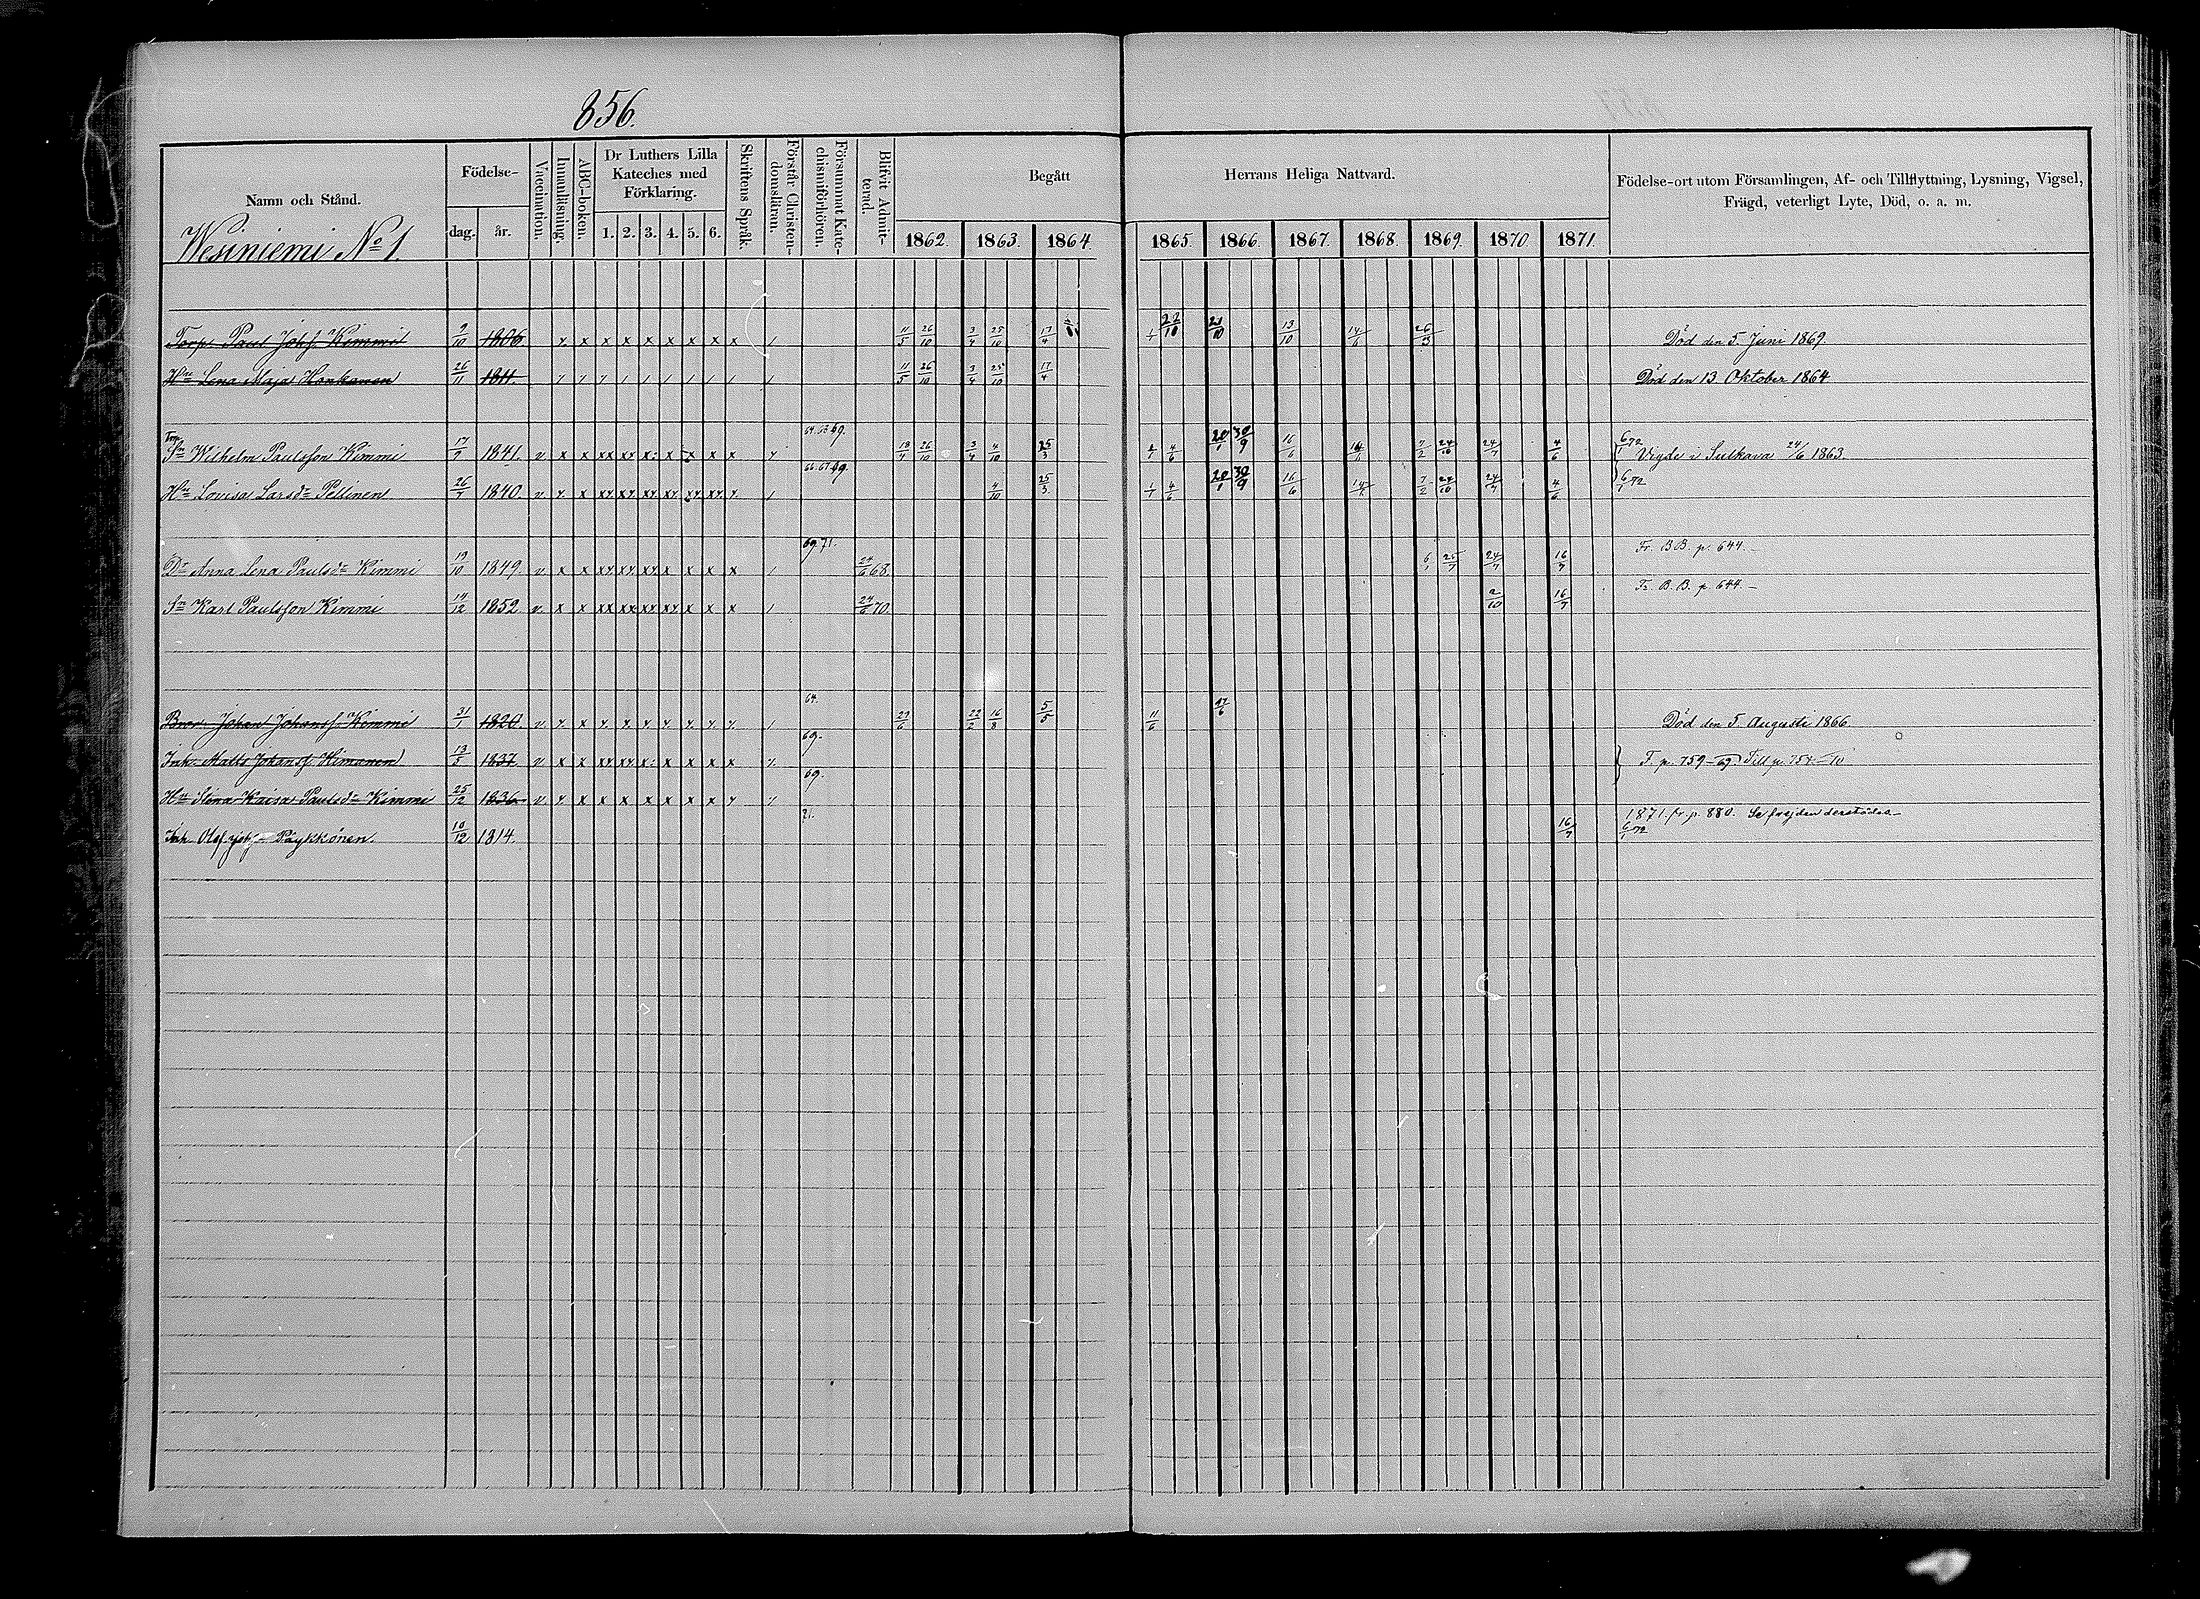 856.
Namn och Stånd.
Wesiniemi No 1.
Födelse-
dag. år.
Vaccination.
Innanläsning.
ABC-boken.
Dr Luthers Lilla
Kateches med
Förklaring.
1. 2. 3. 4. 5. 6.
Skriftens Språk.
Förstår Christen-
domsläran.
Försummat Kate-
chismiförhören.
Blifvit Admit-
terad.
Begått Herrans Heliga Nattvard.
1862. 1863. 1864. 1865. 1866. 1867. 1868. 1869. 1870. 1871.
Födelse-ort utom Församlingen, Af- och Tillflyttning, Lysning, Vigsel,
Frägd, veterligt Lyte, Död, o. a. m.
Torp. Paul Johs. Kimmi 9/10 1806 x x x x x x x x x 11/5 26/10 3/4 25/10 17/4 1/1 22/10 21/10 13/10 14/6 26/3 Död den 5. Juni 1869.
Hu Lena Maja Honkanen 26/11 1811. 11/5 26/10 3/4 25/10 17/4 Död den 13 Oktober 1864
Torp.
Sn Wilhelm Paulsson Kimmi 17/7 1841. v x x xx 69. 18/4 26/10 3/4 4/10 25/3 4/6 20/1 30/9 16/6 14/6 7/2 24/10 24/7 4/6 6/1 72 Vigde i Sulkava 24/6 1863.
Hu Lovisa Larsdr Pellinen 26/7 1840. v 66.67.69. 4/10 25/3 1/1 4/6 20/1 30/9 16/6 14/6 7/2 24/10 24/7 4/6 6/1 72
Dr Anna Lena Paulsdr Kimmi 19/10 1849. v x x 69.71. 24/6 68. 6/1 25/7 24/7 16/7 Fr. B.B. p. 644.
Sn Karl Paulsson Kimmi 14/12 1852 v. x x xx 24/6 70. 2/10 16/7 Fr. B.B. p. 644.
Brod. Johan Johanss. Kimmi 31/1 1820. v 64. 29/6 22/2 16/8 5/5 11/6 17/6 Död den 5. Augusti 1866.
Inh. Matts Johanss. Kimanen 13/5 1837 v x x 69. F. p. 759 - 69) Till p. 754
Hu Stina Kaisa Paulsdr Kimmi 25/12 1836. v x x 69.
Inh. Olof Päykkönen. 10/12 1814. 16/7 1871. fr. p. 880. Se frejden derstädes
6/1 72